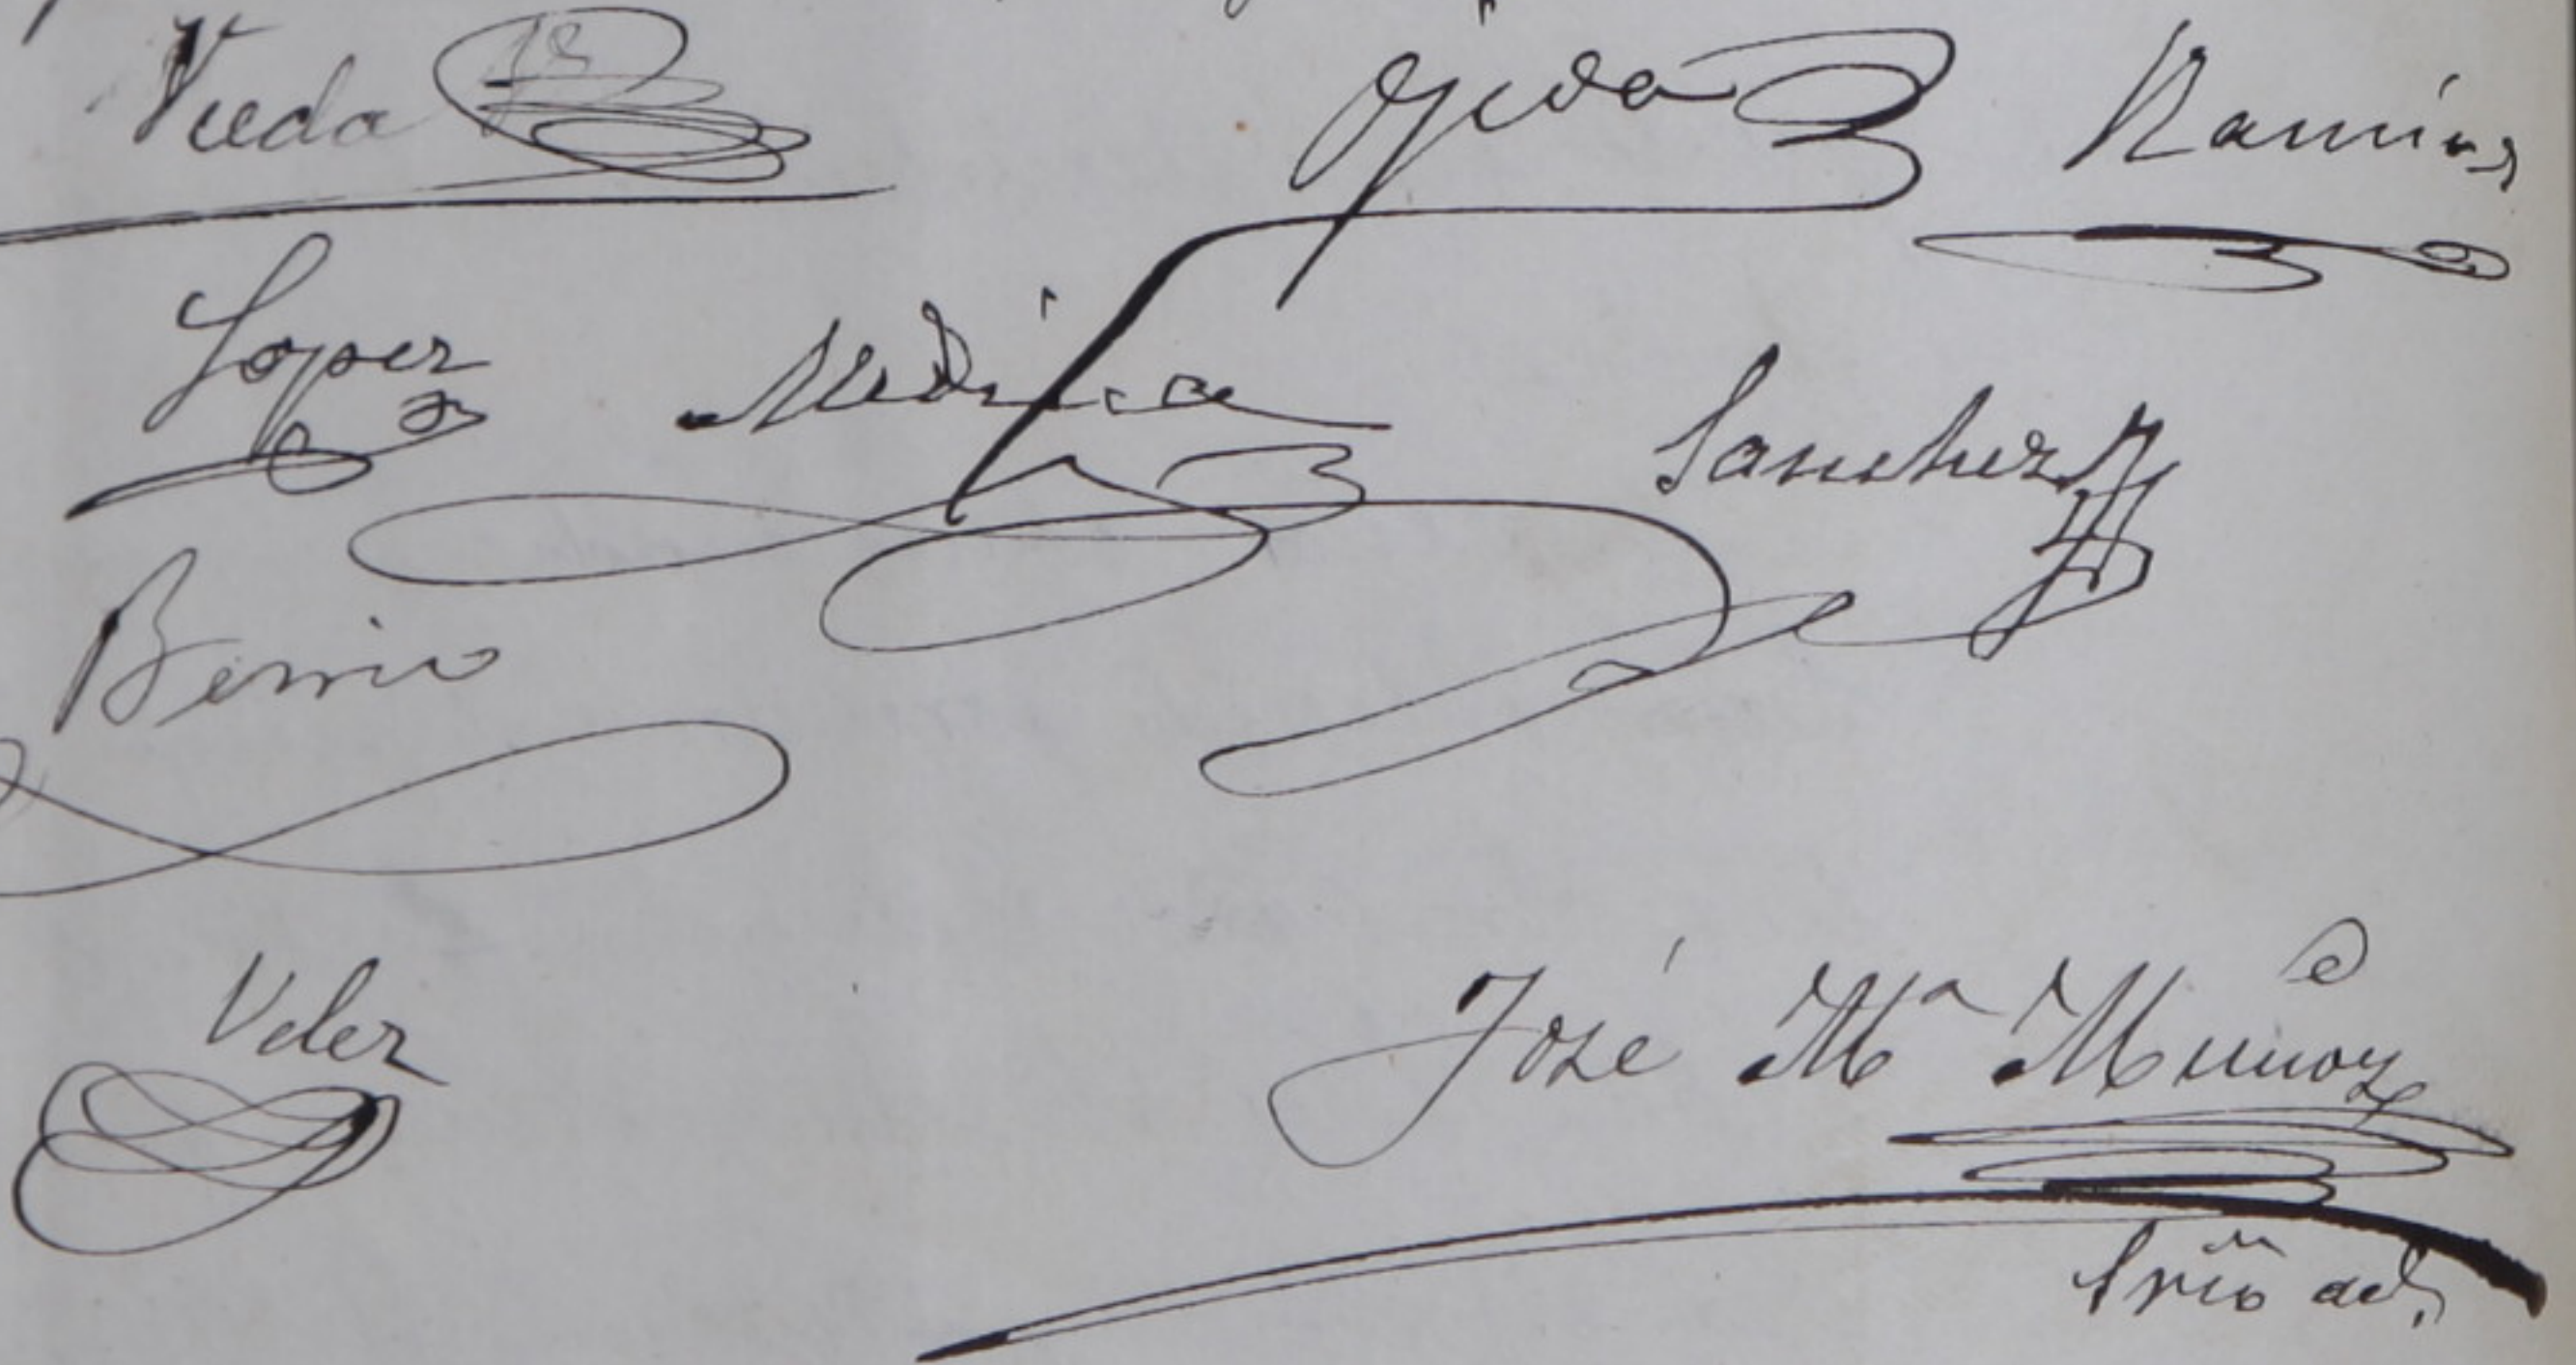 Ojeda Ramirez
Lopez Medina Sanchez
Berrio
Velez
José Mª Muñoz
Srio ad.